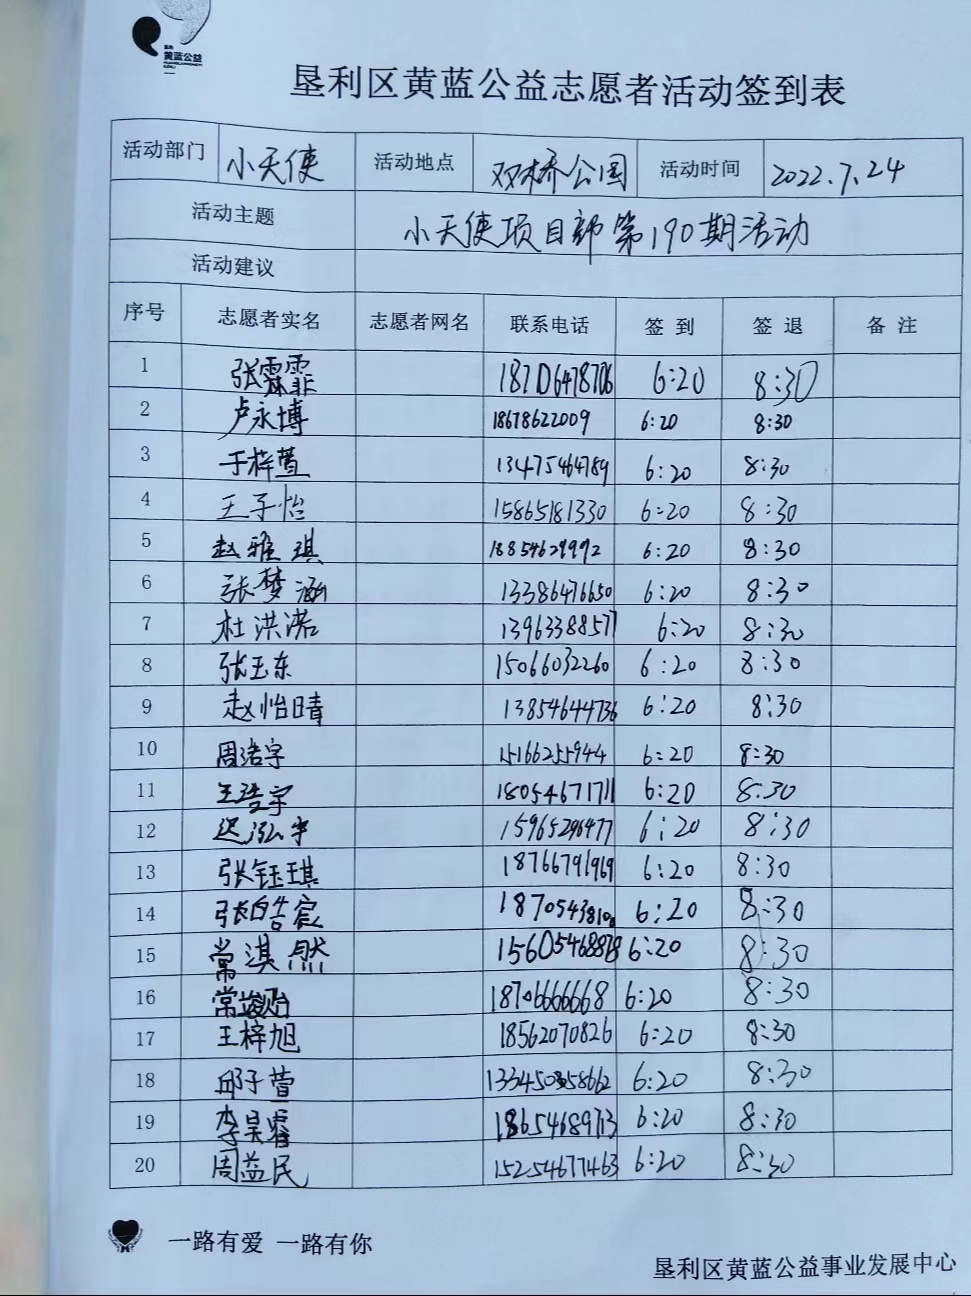 垦利
黄蓝公益
垦利区黄蓝公益志愿者活动签到表
活动部门 小天使 活动地点 双桥公园 活动时间 2022.7.24
活动主题 小天使项目部第190期活动
活动建议
序号 志愿者实名 志愿者网名 联系电话 签到 签退 备注
1 张霖霏 18706478706 6:20 8:30
2 卢永博 18678622009 6:20 8:30
3 于梓萱 13475464789 6:20 8:30
4 王子怡 15865181330 6:20 8:30
5 赵雅琪 18854629992 6:20 8:30
6 张梦涵 13386476650 6:20 8:30
7 杜洪诺 13963388577 6:20 8:30
8 张玉东 15066032260 6:20 8:30
9 赵怡晴 13854644736 6:20 8:30
10 周浩宇 15166255944 6:20 8:30
11 王浩宇 18054671711 6:20 8:30
12 迟泓宇 15965296477 6:20 8:30
13 张钰琪 18766791919 6:20 8:30
14 张皓宸 6:20 8:30
15 常淇然 15605468878 6:20 8:30
16 18706666668 6:20 8:30
17 王梓旭 18562070826 6:20 8:30
18 邱子萱 6:20 8:30
19 李昊睿 6:20 8:30
20 周益民 15254677463 6:20 8:30
一路有爱 一路有你
垦利区黄蓝公益事业发展中心